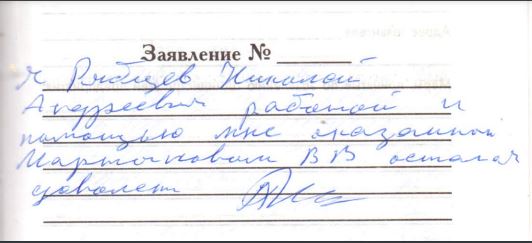 Заявление № ______
Я Рябцев Николай
Андреевич работой и
помощью мне оказанной
Мартыновым В В остался
доволен